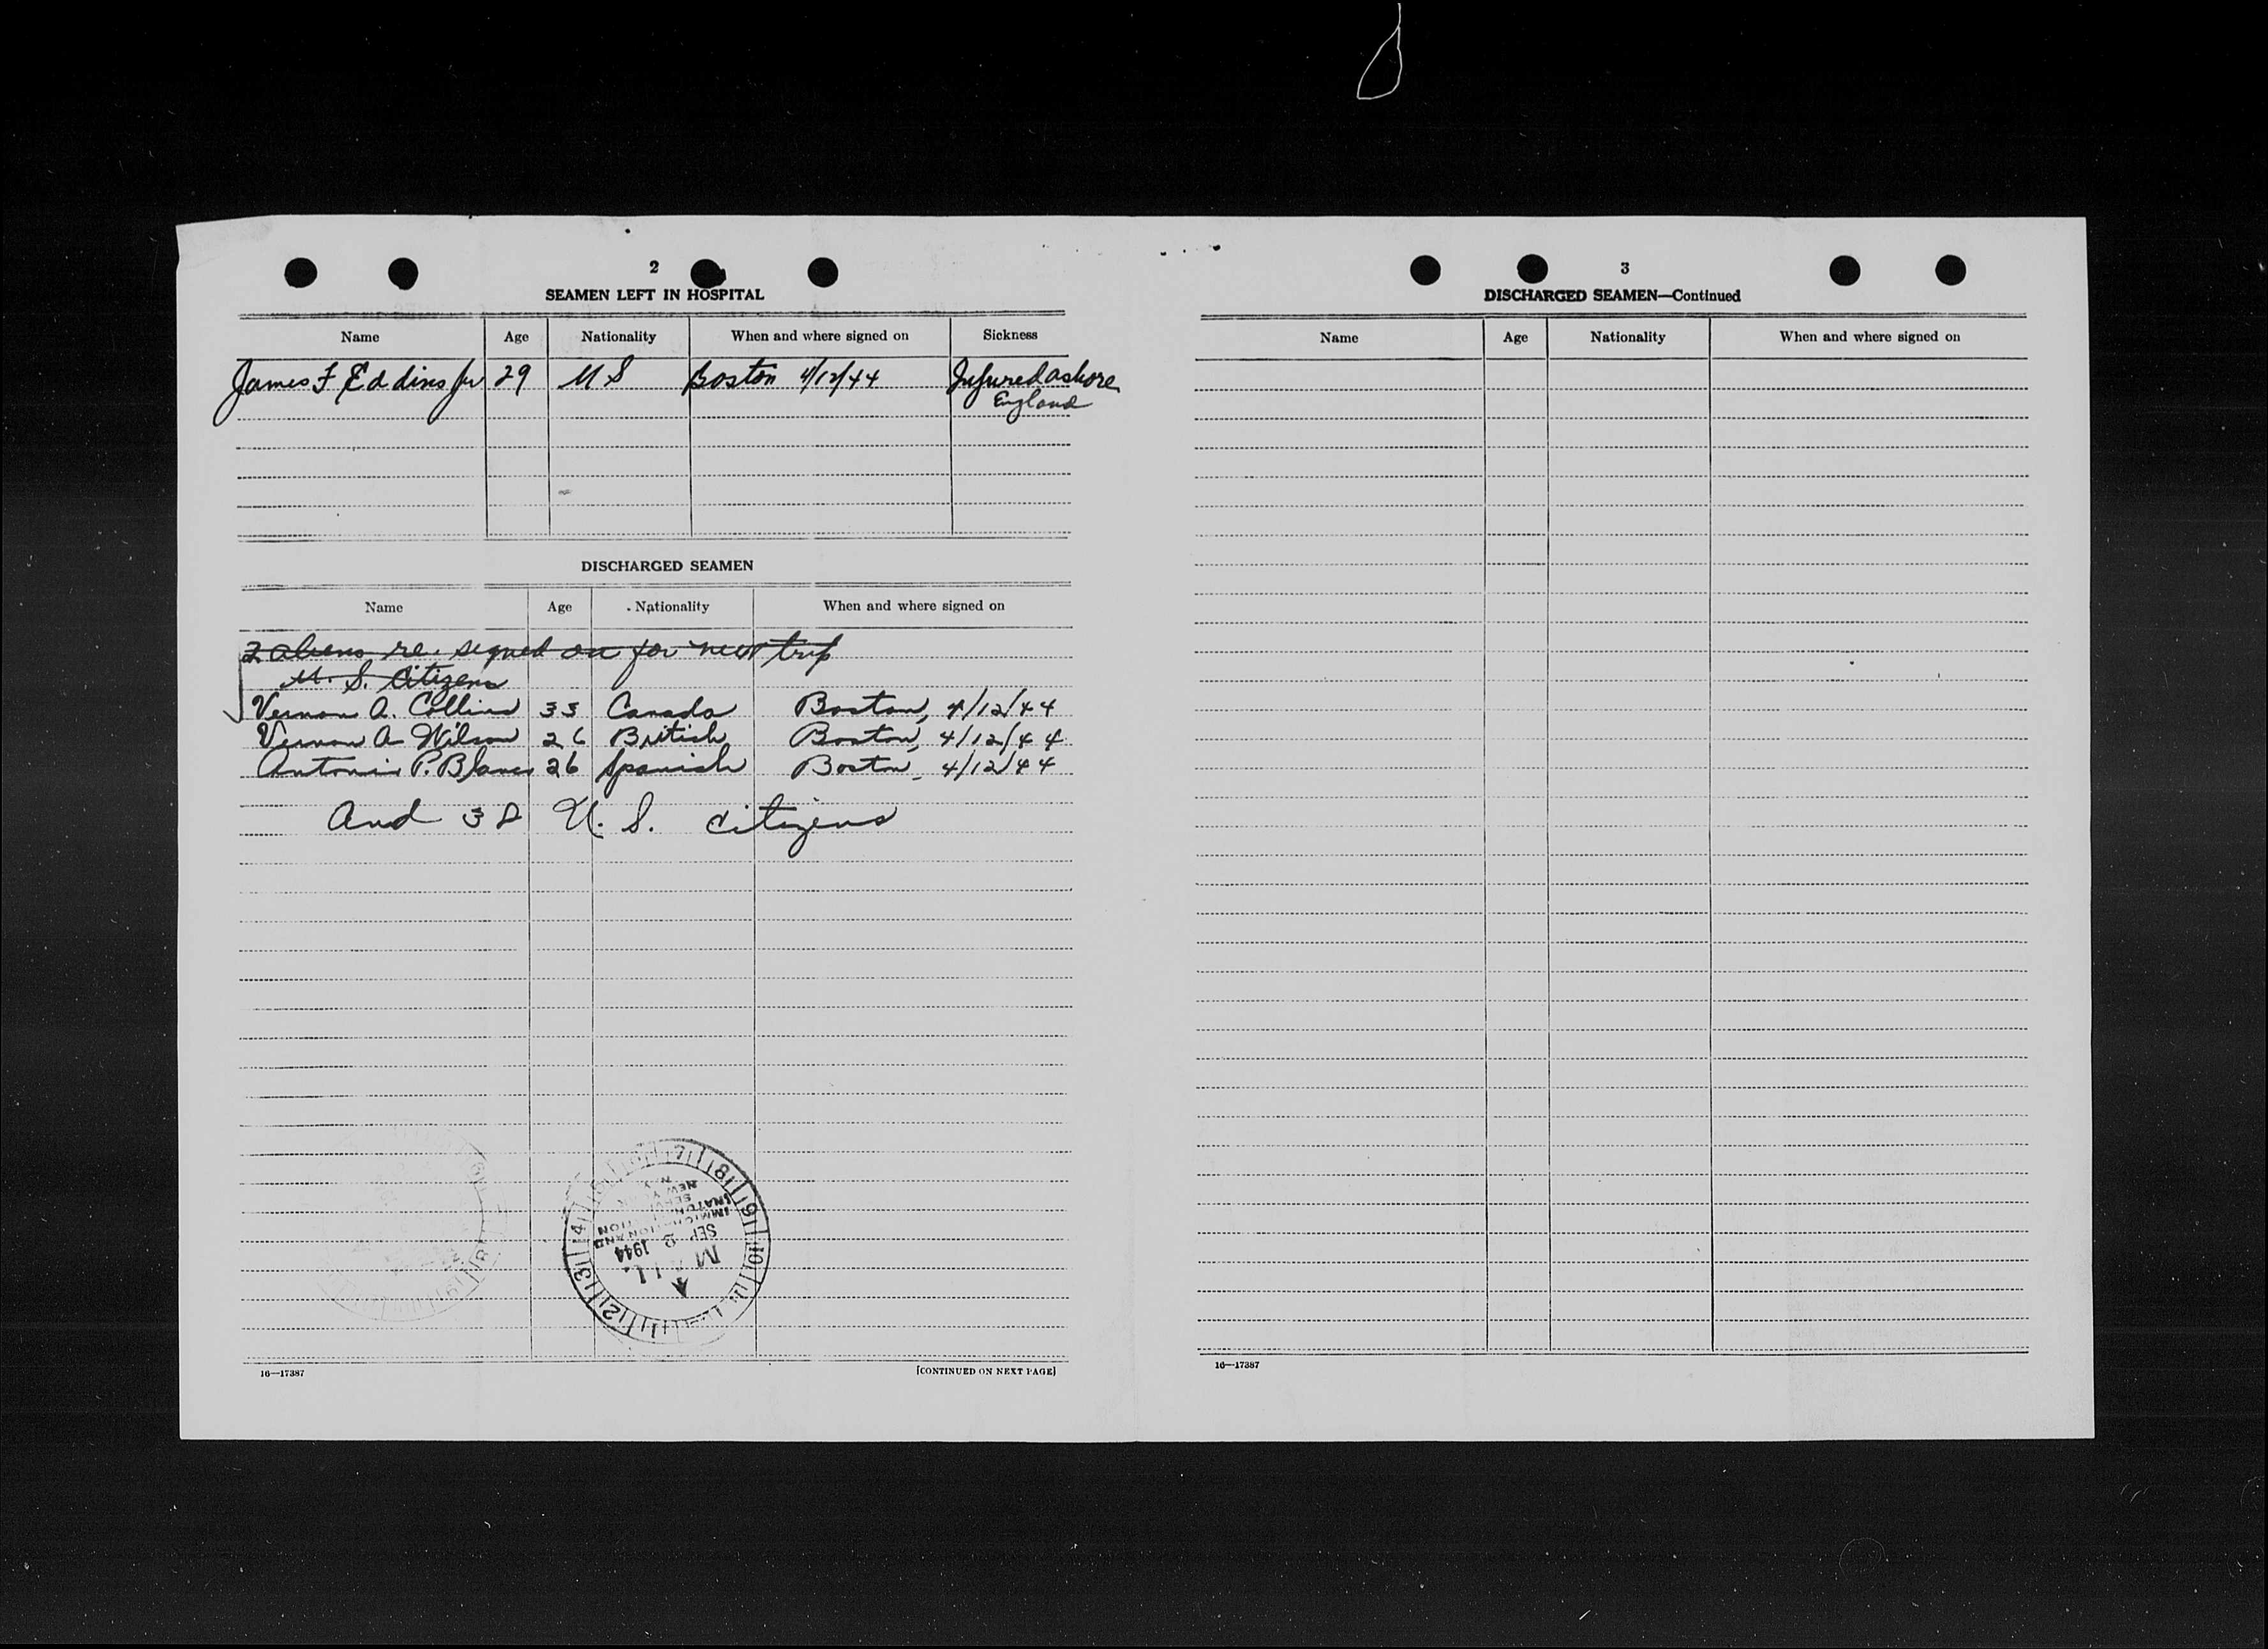 2
SEAMEN LEFT IN HOSPITAL
Name Age Nationality When and where signed on Sickness
James F Eddins Jr 29 US Boston 4/12/44 Injured ashore
England
DISCHARGED SEAMEN
Name Age Nationality When and where signed on
2 aliens re. signed on for next trip
U. S. Citizens
Vernon A. Collins 33 Canada Boston, 4/12/44
Vernon A Wilson 26 British Boston, 4/12/44
Antonio P. Blanco 26 Spanish Boston, 4/12/44
And 38 U. S. citizens
MAIL
SEP 2 1944
IMMIGRATION AND
NATURALIZATION
SERVICE
NEW YORK
16—17387
[CONTINUED ON NEXT PAGE]
3
DISCHARGED SEAMEN—Continued
Name Age Nationality When and where signed on
16—17387